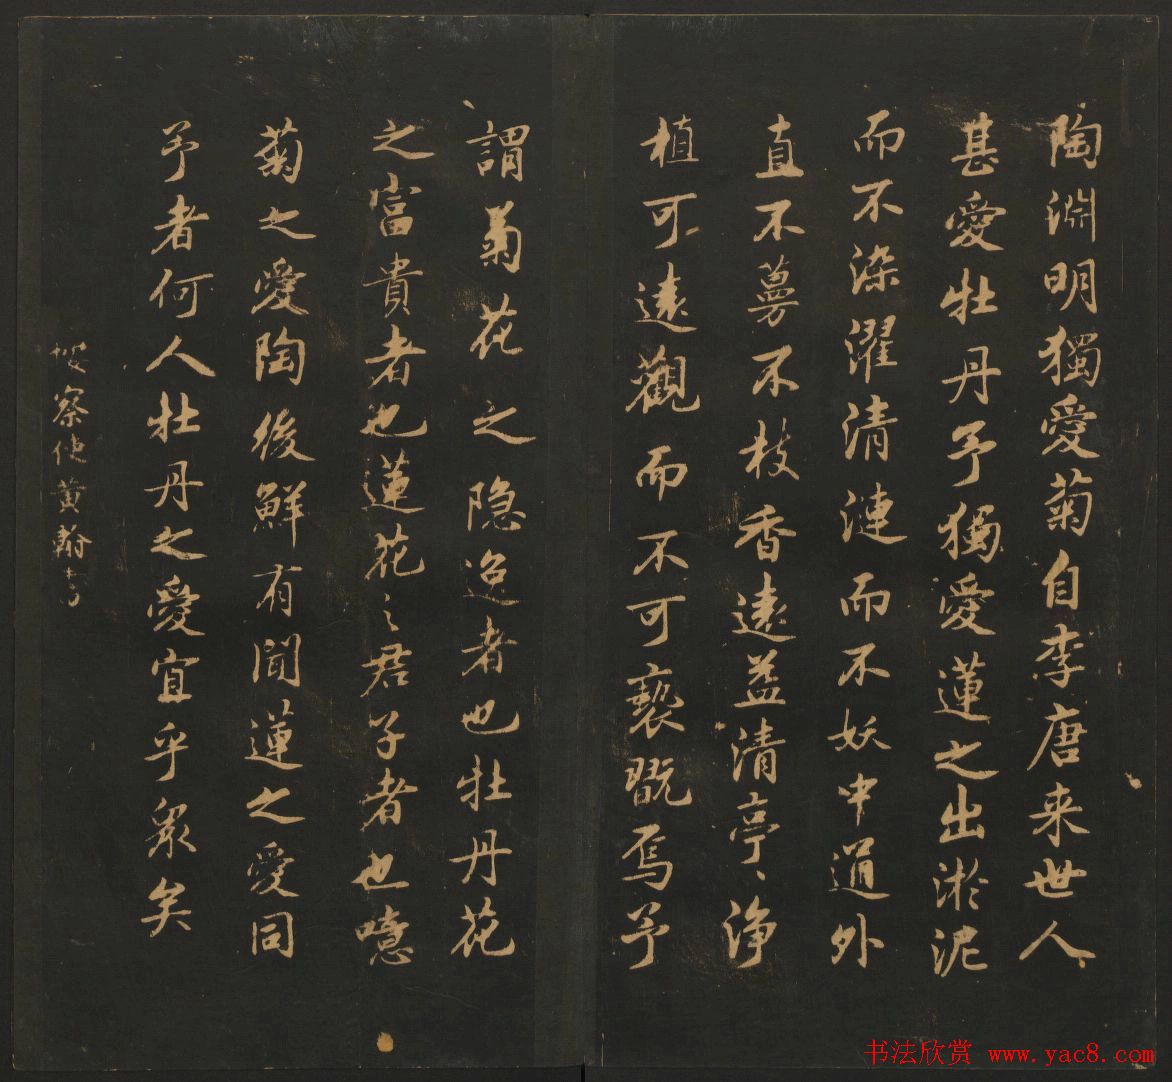 陶淵明獨愛菊自李唐来世人
甚愛牡丹予獨愛蓮之出淤泥
而不染濯清漣而不妖中通外
直不蔓不枝香遠益清亭〻淨
植可遠觀而不可褻翫焉予
謂菊花之隐逸者也牡丹花
之富貴者也蓮花之君子者也噫
菊之愛陶後鮮有聞蓮之愛同
予者何人牡丹之愛宜乎衆矣
按察使黄翰書
书法欣赏 www.yac8.com